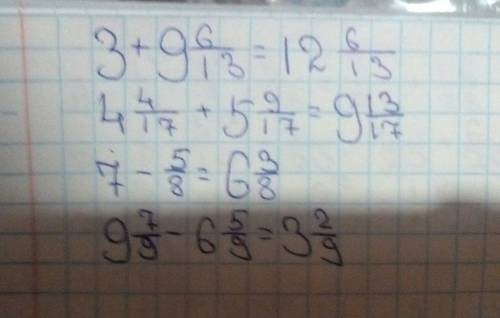 3 + 9 6/13 = 12 6/13
4 4/17 + 5 9/17 = 9 13/17
7 - 5/8 = 6 3/8
9 7/9 - 6 5/9 = 3 2/9